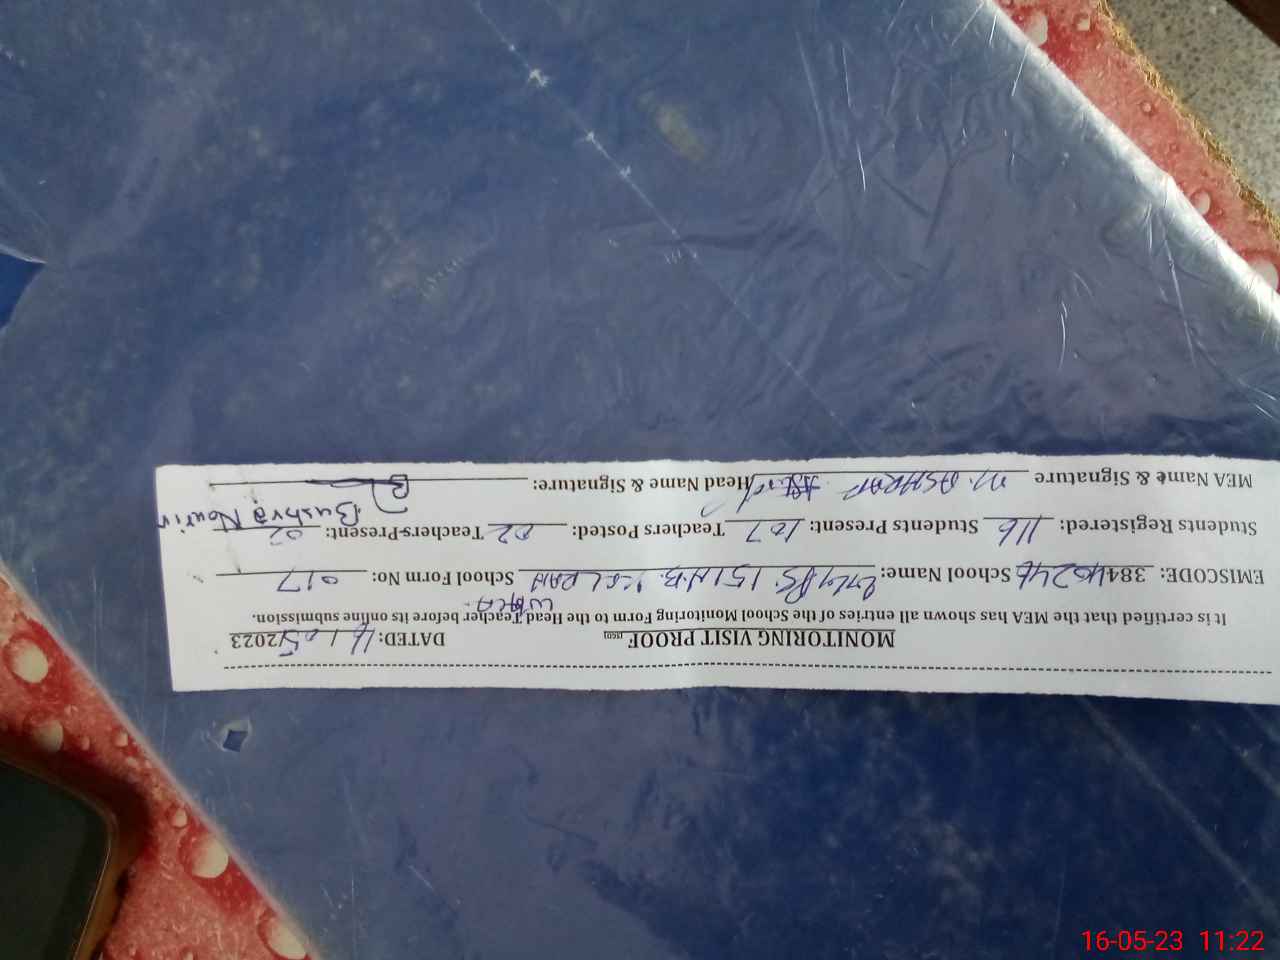 MONITORING VISIT PROOF DATED: 16/05/2023
It is certified that the MEA has shown all entries of the School Monitoring Form to the Head Teacher before its online submission.
EMISCODE: 38440246 School Name: PS 151 N.B. School Form No: 017
Students Registered: 116 Students Present: 107 Teachers Posted: 02 Teachers Present: 02
Bushra
MEA Name & Signature M. ASHRAF Head Name & Signature:
16-05-23 11:22